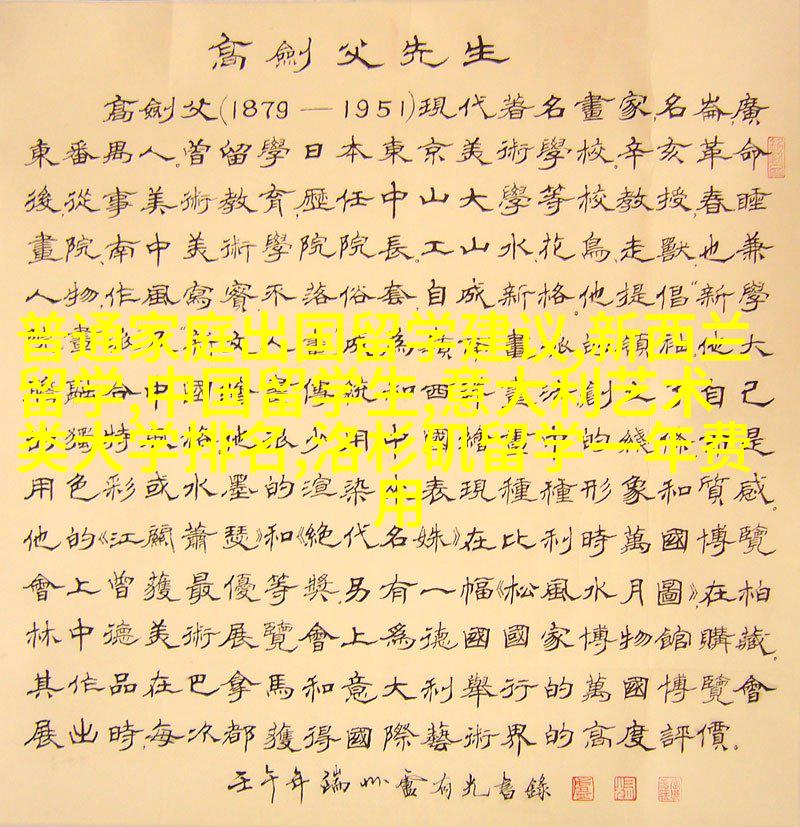 高劍父先生
高劍父(1879—1951)現代著名畫家,名崙,廣
東番禺人.曾留學日本東京美術學校.辛亥革命
後,從事美術教育,歷任中山大學等校教授,春睡
畫院,南中美術學院院長.工山水,花鳥,走獸,也兼
人物作風寫實,不落俗套,自成新格.他提倡“新學
普通家庭出国留学建议,新西兰
留学,中国留学生,意大利艺术
类大学排名,洛杉矶留学一年费
用
他大
融合中國 傳統和西 自己
獨特 格,他很少用中國繪畫中的綫條 是
用色彩或水墨的渲染 表現種種形象和質感.
他的《江關蕭瑟》和《絕代名姝》在比利時萬國博覽
會上曾獲最優等獎.另有一幅《松風水月圖》,在柏
林中德美術展覽會上爲德國國家博物館購藏.
其作品在巴拿馬和意大利舉行的萬國博覽會
展出時,每次都獲得國際藝術界的高度評價。
壬午年端州盧有光書錄